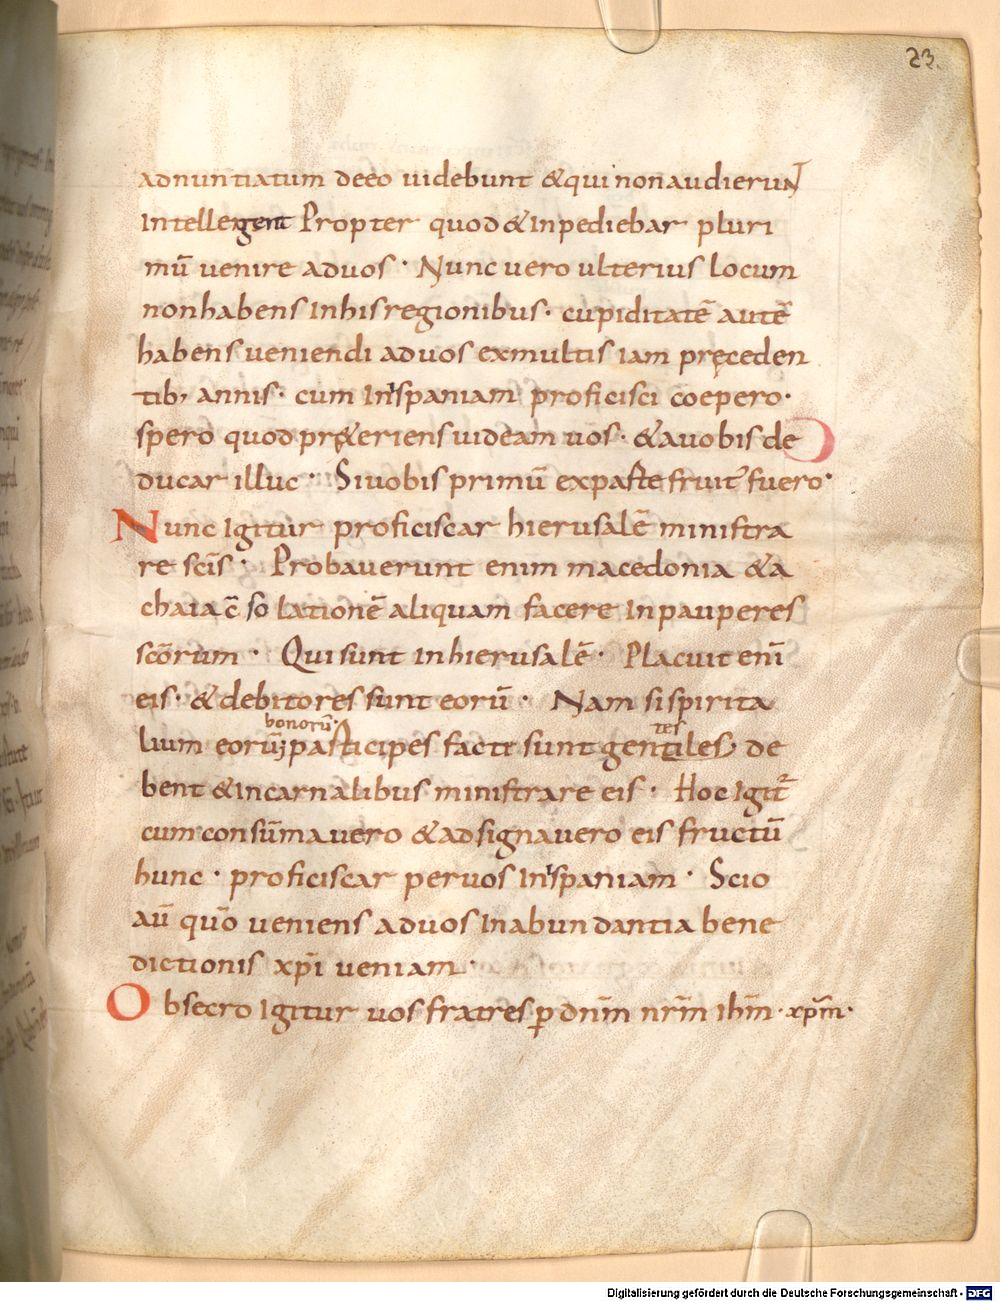 23.
adnuntiatum deeo uidebunt &quinonaudierunt
Intellegent Propter quod&Inpediebar pluri
mū uenire aduos · Nunc uero ulterius locum
nonhabens Inhisregionibus · cupiditatē autē
habens ueniendi aduos exmultis iam pręceden
tib; annis · cum Inhspaniam proficisci coepero ·
spero quod pr&eriens uideam uos · &auobis de
ducar illuc · Siuobis primū exparte fruit' fuero ·
Nunc Igitur proficiscar hierusalē ministra
re scīs · Probauerunt enim macedonia &a
chaia c̄ so lationē aliquam facere Inpauperes
scōrum · Qui sunt Inhierusalē · Placuit enī
eis · & debitores sunt eorū · Nam sispirita
bonorū · tes
lium eorū participes facti sunt gentiles de
bent &Incarnalibus ministrare eis · Hoc Igit̄
cum consūmauero &adsignauero eis fructū
hunc · proficiscar peruos Inhspaniam · Scio
aū quō ueniens aduos Inabundantia bene
dictionis xpī ueniam ·
Obsecro Igitur uos fratres ꝑ dnm̄ nrm̄ ihm̄ · xpm̄ ·
Digitalisierung gefördert durch die Deutsche Forschungsgemeinschaft - DFG